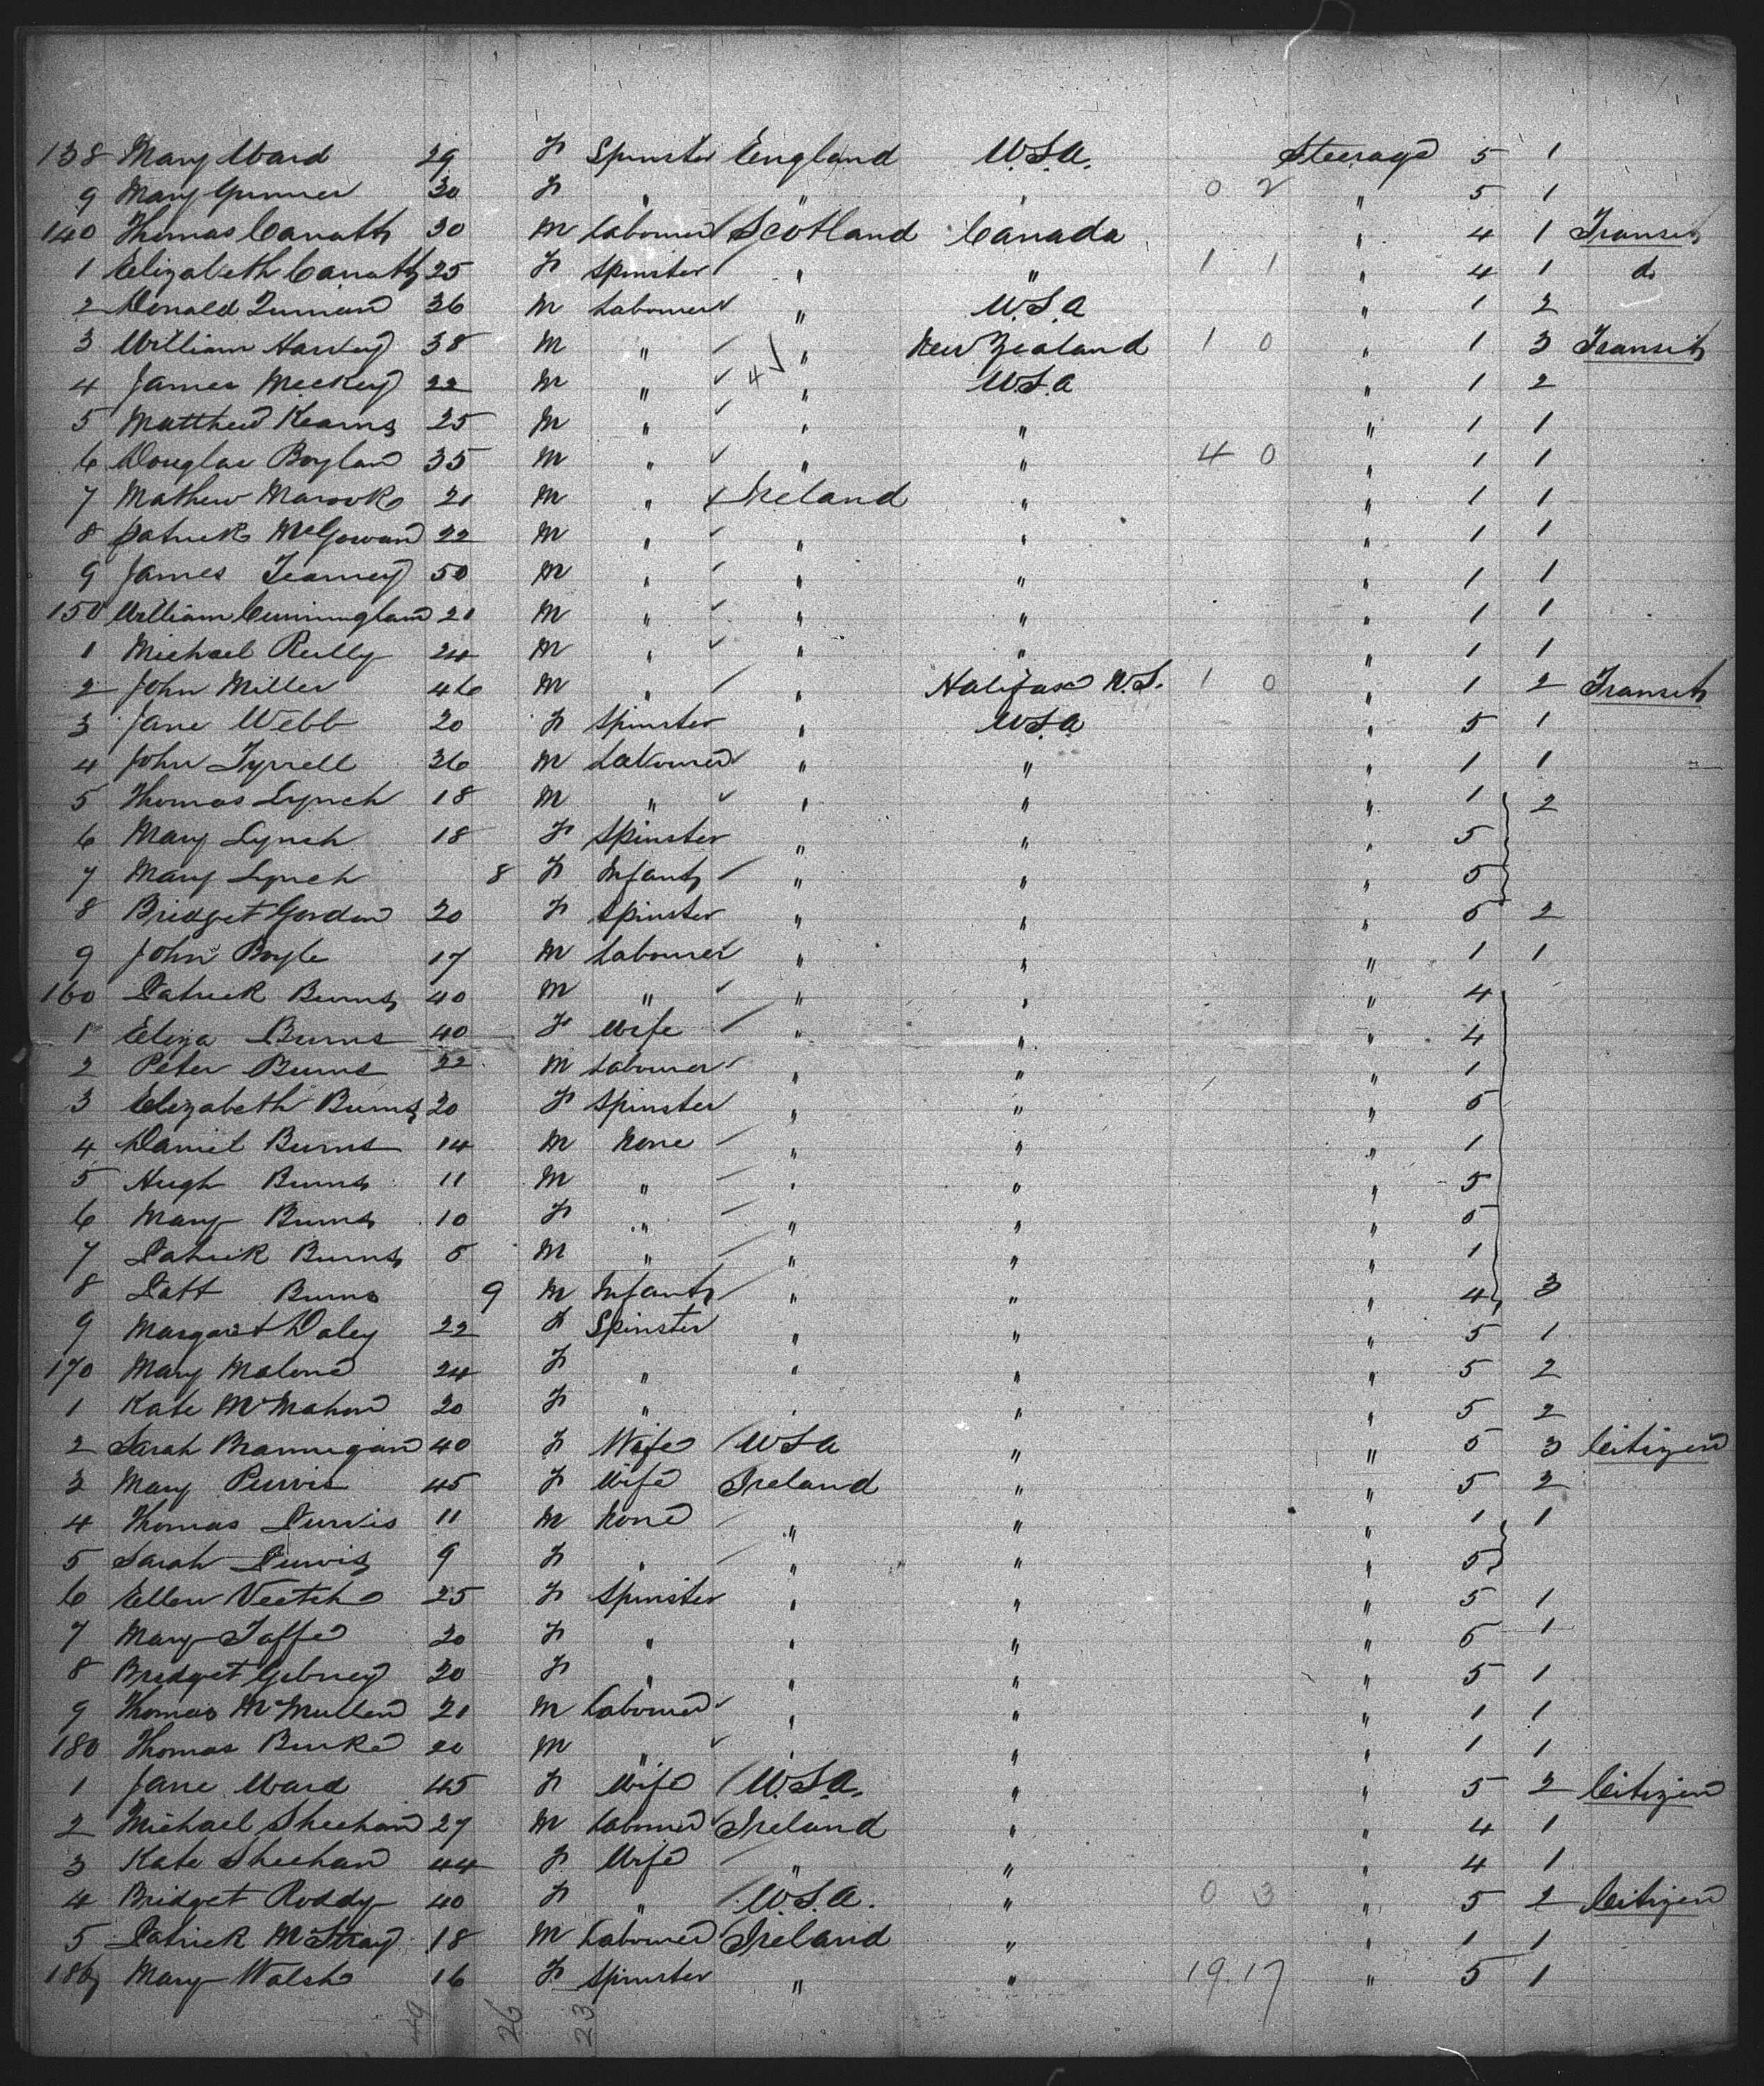 138 Mary Ward 29 F Spinster England U.S.A. Steerage 5 1
9 Mary Gunner 30 F " " " 0 2 " 5 1
140 Thomas Canath 30 M Labourer Scotland Canada " 4 1 Transit
1 Elizabeth Canath 25 F Spinster " " 1 1 " 4 1 do
2 Donald 36 M Labourer " U.S.A " 1 2
3 William Harvey 38 M " " New Zealand 1 0 " 1 3 Transit
4 James 22 M " 4 " U.S.A " 1 2
5 Matthew Kearns 25 M " " " " 1 1
6 Douglas Boylan 35 M " " " 4 0 " 1 1
7 Mathew 21 M " Ireland " " 1 1
8 Patrick McGowan 22 M " " " " 1 1
9 James Tearney 50 M " " " " 1 1
150 William Cunningham 21 M " " " " 1 1
1 Michael Reilly 24 M " " " " 1 1
2 John Miller 46 M " " Halifax N.S. 1 0 " 1 2 Transit
3 Jane Webb 20 F Spinster " U.S.A " 5 1
4 John Tyrrell 36 M Labourer " " " 1 1
5 Thomas Lynch 18 M " " " " 1 2
6 Mary Lynch 18 F Spinster " " " 5
7 Mary Lynch 8 F Infant " " " 5
8 Bridget Gordon 20 F Spinster " " " 5 2
9 John Boyle 17 M Labourer " " " 1 1
160 Patrick Burns 40 M " " " " 4
1 Eliza Burns 40 F Wife " " " 4
2 Peter Burns 22 M Labourer " " " 1
3 Elizabeth Burns 20 F Spinster " " " 5
4 Daniel Burns 14 M None " " " 1
5 Hugh Burns 11 M " " " " 5
6 Mary Burns 10 F " " " " 5
7 Patrick Burns 5 M " " " " 1
8 Patt Burns 9 M Infant " " " 4 3
9 Margaret Daley 22 F Spinster " " " 5 1
170 Mary Malone 24 F " " " " 5 2
1 Kate McMahon 20 F " " " " 5 2
2 Sarah Brannigan 40 F Wife USA " " 5 3 Citizen
3 Mary Purvis 45 F Wife Ireland " " 5 2
4 Thomas Purvis 11 M None " " " 1 1
5 Sarah Purvis 9 F " " " " 5
6 Ellen Veetch 25 F Spinster " " " 5 1
7 Mary Taffe 20 F " " " " 5 1
8 Bridget Gibney 20 F " " " " 5 1
9 Thomas McMullen 21 M Labourer " " " 1 1
180 Thomas Burke 20 M " " " " 1 1
1 Jane Ward 45 F Wife U.S.A. " " 5 2 Citizen
2 Michael Sheehan 27 M Labourer Ireland " " 4 1
3 Kate Sheehan 44 F Wife " " " 4 1
4 Bridget Roddy 40 F " U.S.A. " 0 3 " 5 2 Citizen
5 Patrick 18 M Labourer Ireland " " 1 1
186 Mary Walsh 16 F Spinster " " 19.17 " 5 1
49 26 23